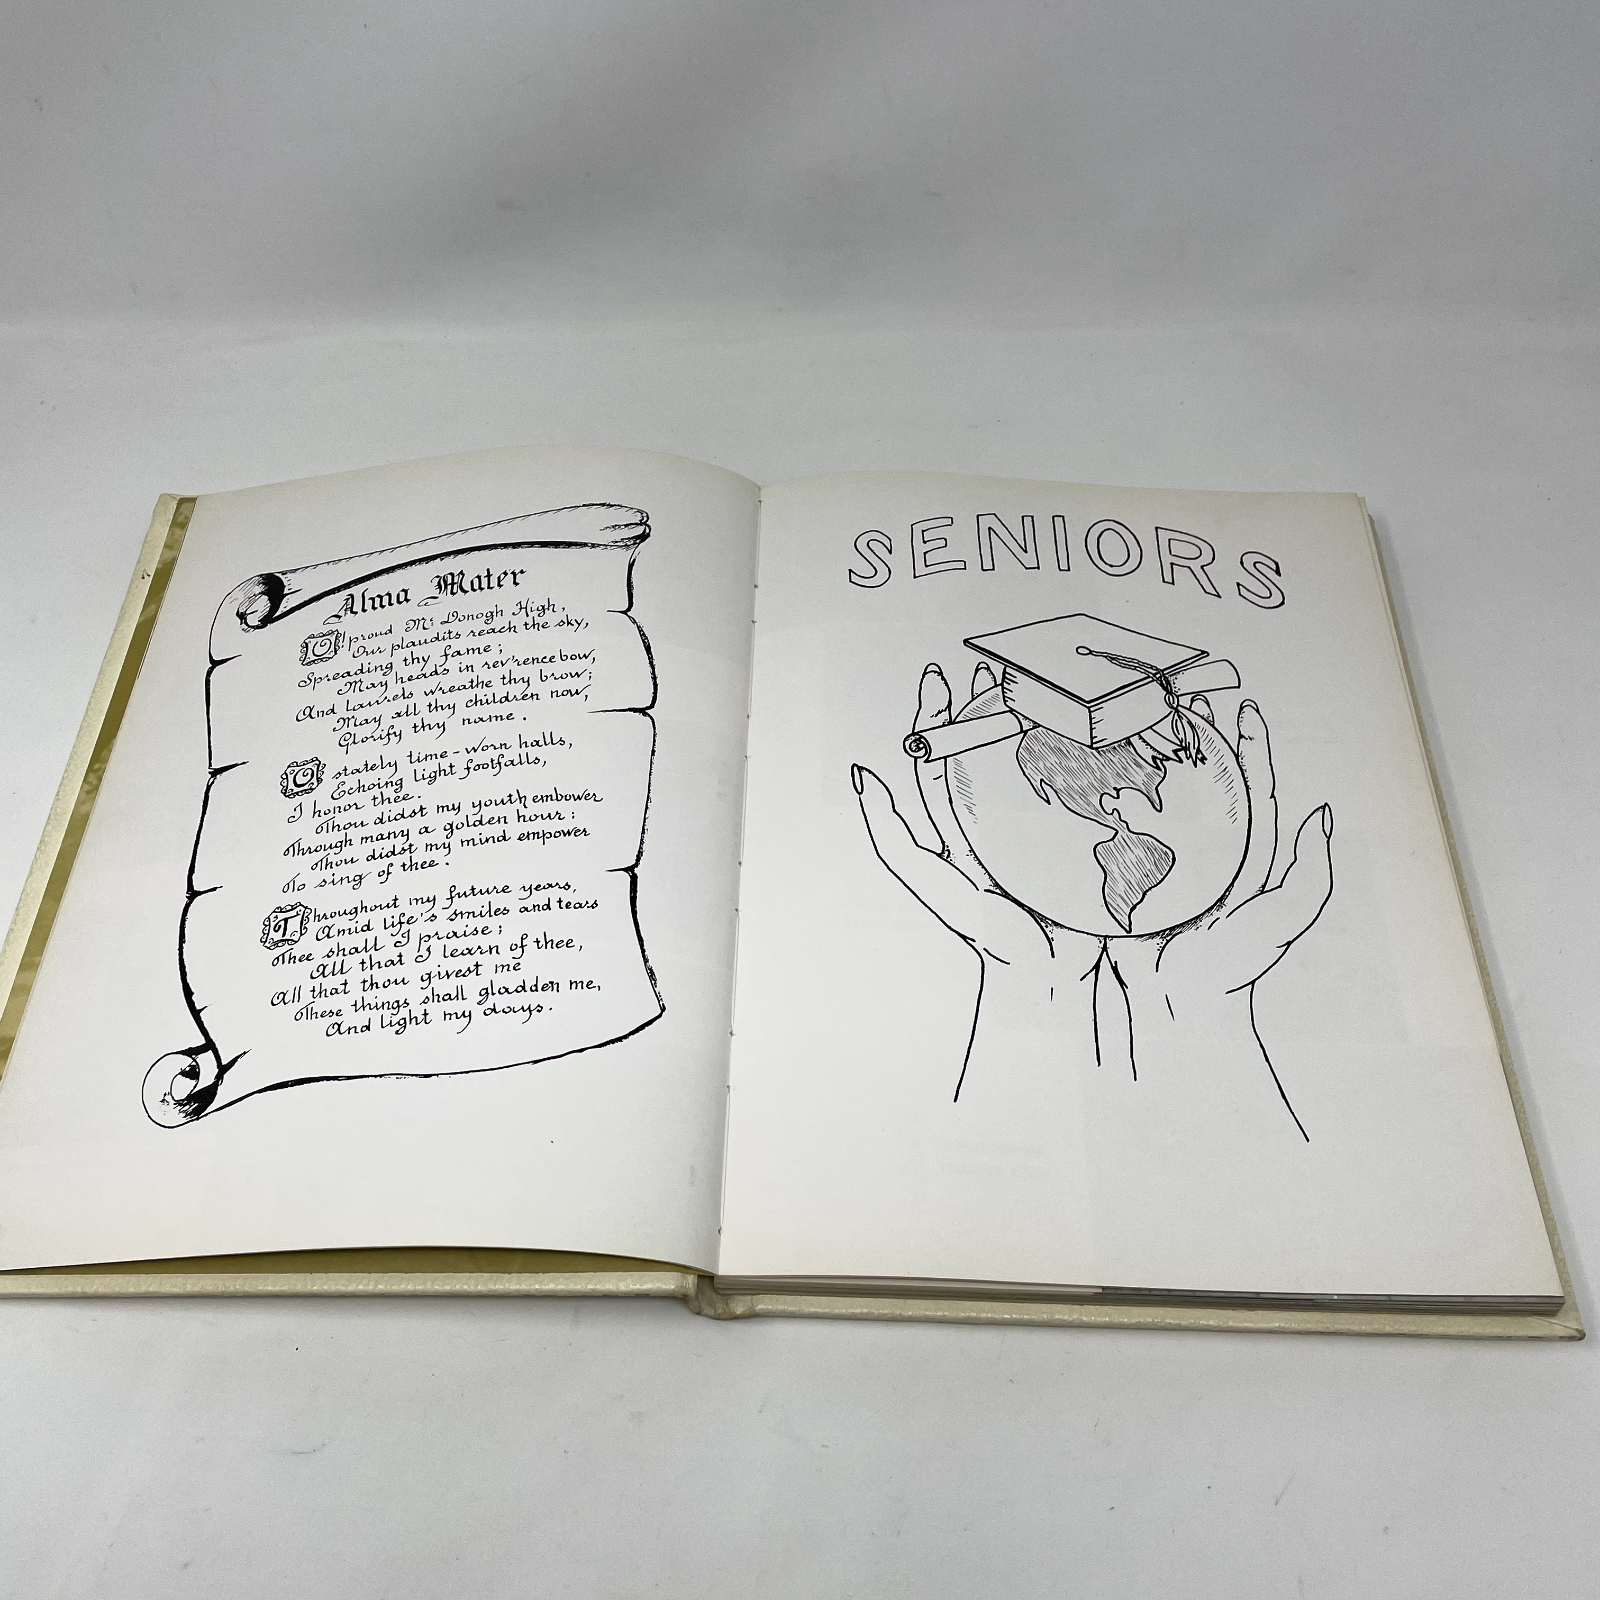 Alma Mater
O! proud Mc Donogh High,
Our plaudits reach the sky,
Spreading thy fame;
May heads in rev'rence bow,
And laurels wreathe thy brow;
May all thy children now,
Glorify thy name.
O stately time-worn halls,
Echoing light footfalls,
I honor thee.
Thou didst my youth embower
Through many a golden hour:
Thou didst my mind empower
To sing of thee.
Throughout my future years,
Amid life's smiles and tears
Thee shall I praise;
All that I learn of thee,
All that thou givest me
These things shall gladden me,
And light my days.
SENIORS